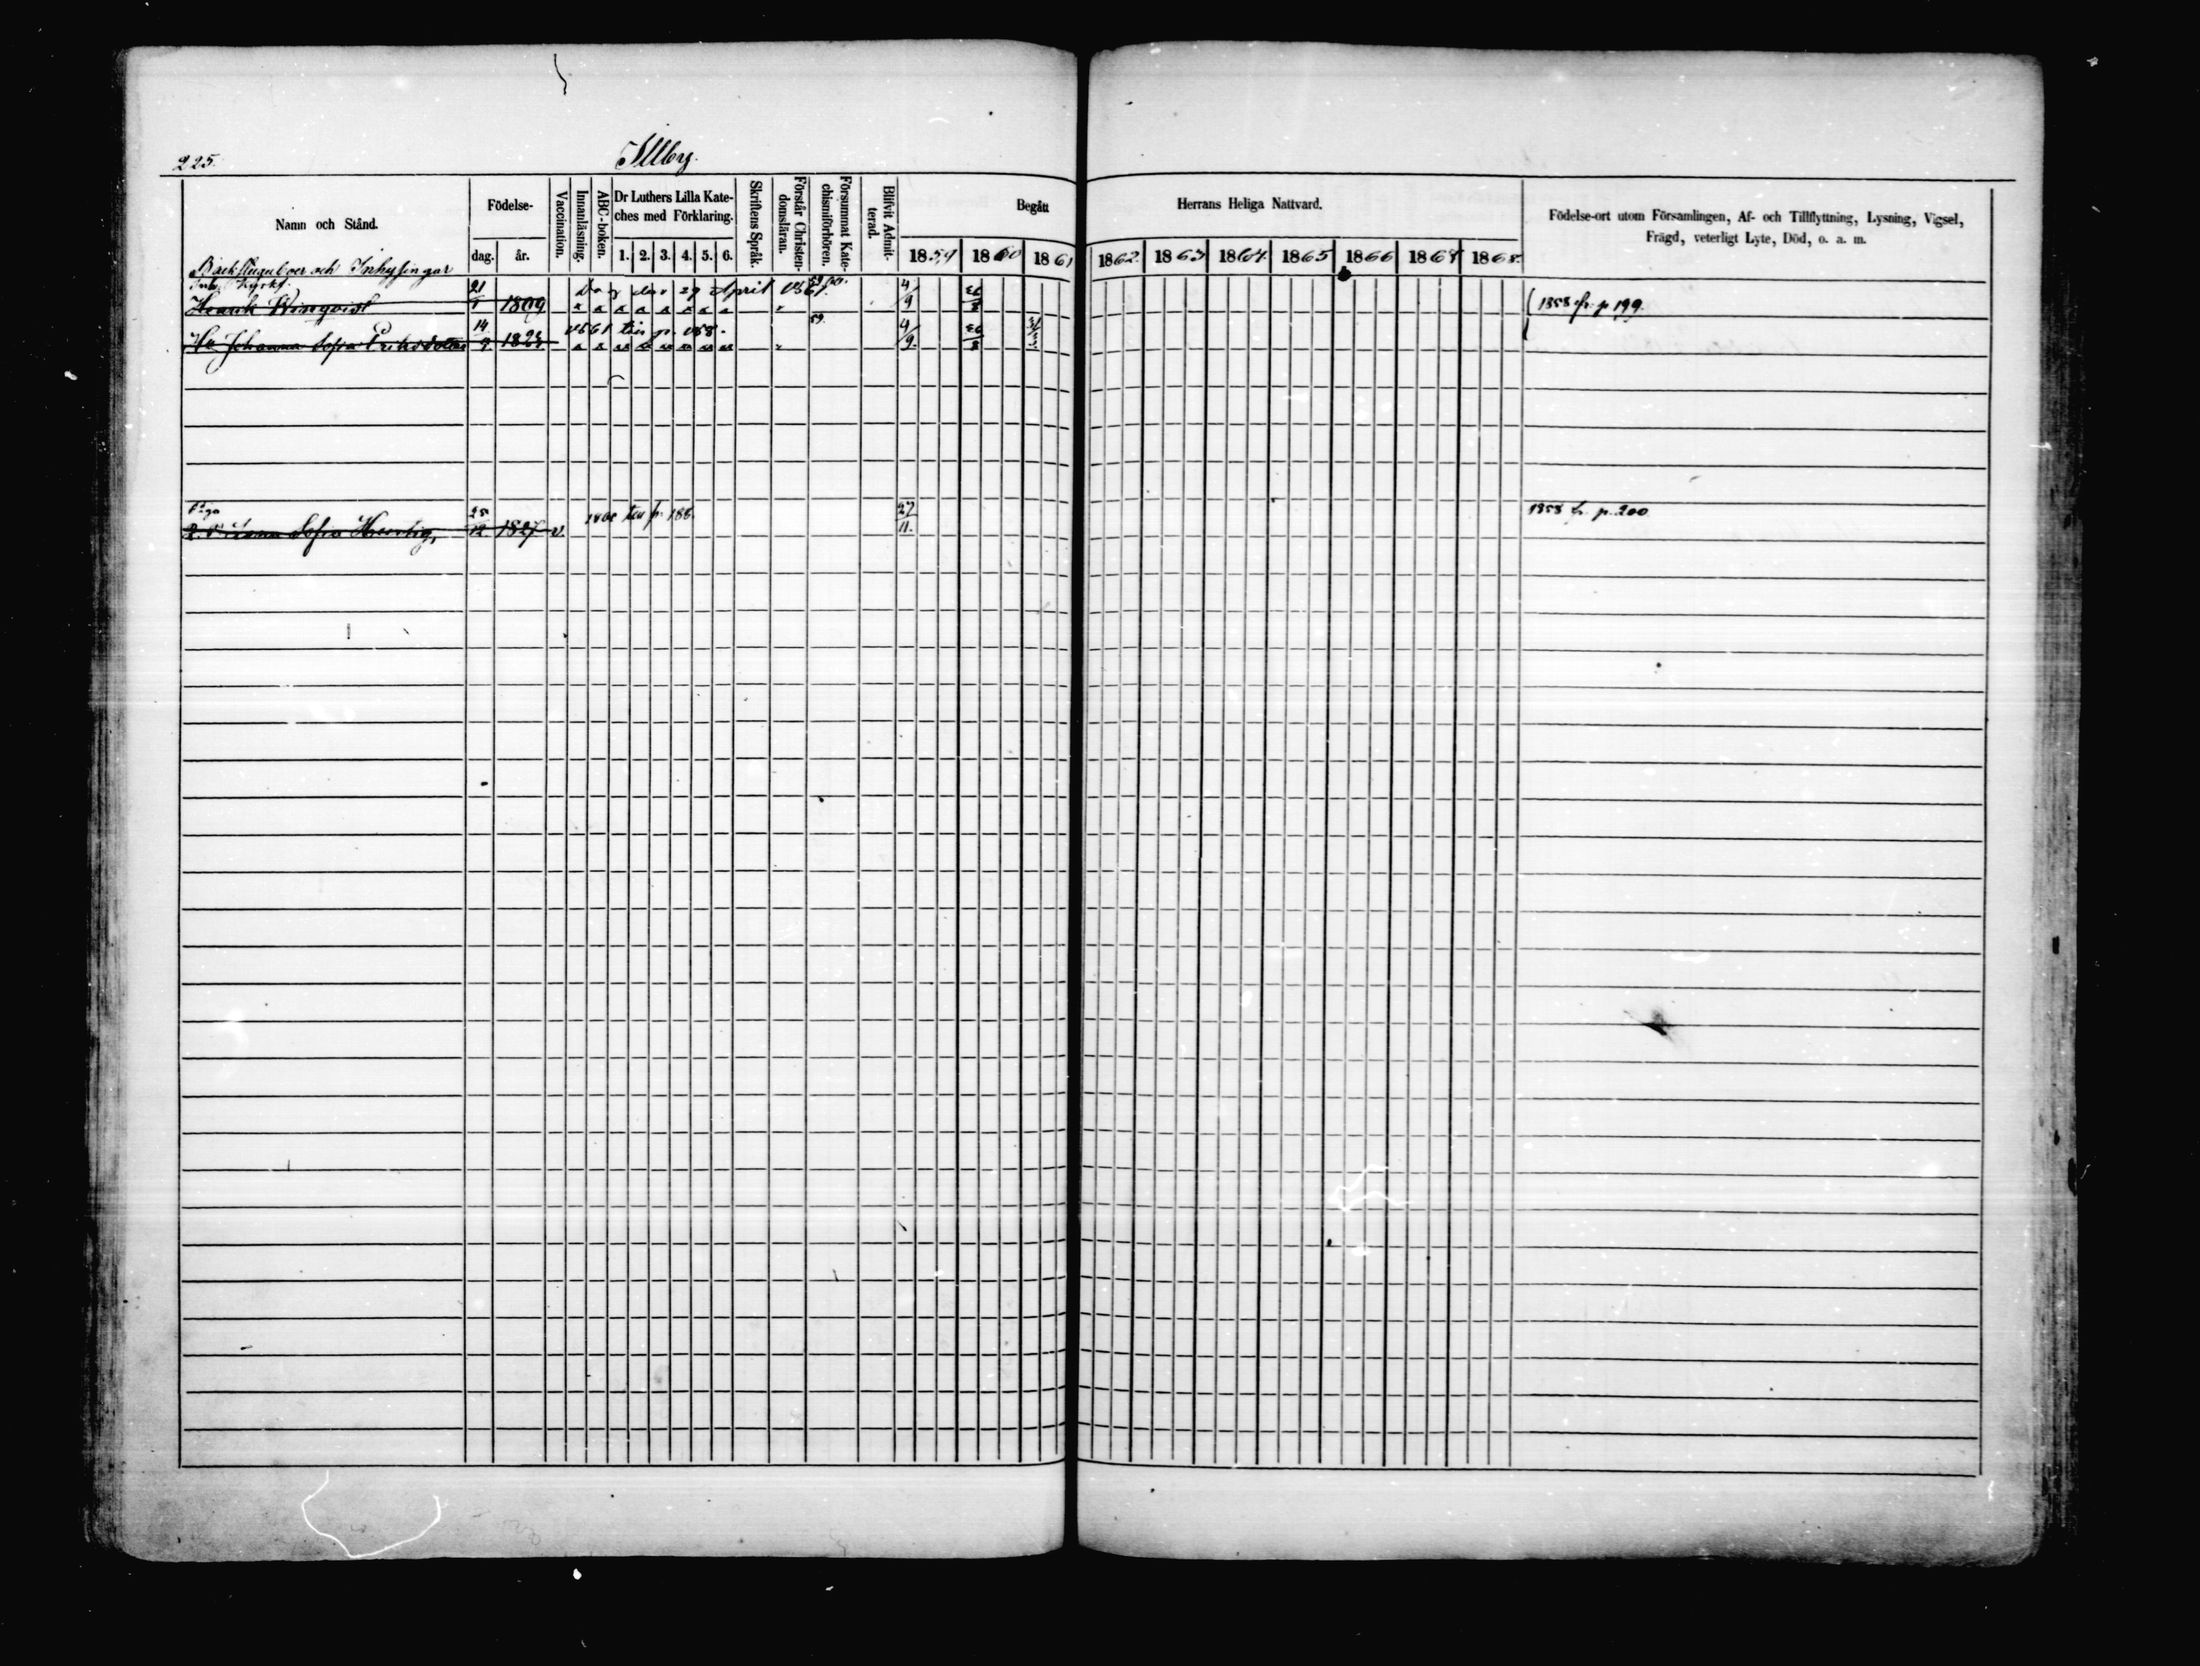 225.
Illby.
Namn och Stånd.
Födelse-
dag.
år.
Vaccination.
Innanläsning.
ABC-boken.
Dr Luthers Lilla Kate-
ches med Förklaring.
1. 2. 3. 4. 5. 6.
Skriftens Språk.
Förstår Christen-
domsläran.
Försummat Kate-
chismiförhören.
Blifvit Admit-
terad.
Begått
Herrans Heliga Nattvard.
1859 1860 1861 1862. 1863 1864. 1865 1866 1867 1868.
Födelse-ort utom Församlingen, Af- och Tillflyttning, Lysning, Vigsel,
Frägd, veterligt Lyte, Död, o. a. m.
Backstuguboer och Inhysingar
Inh.
Henrik Winqvist 21/1 1809
Dog den 29 April 1861.
59 60.
4/9
1858 fr. p 199.
H. Johanna Sofia Eriksdotter 14/9
1861 p. 158.
59.
4/9.
Piga
Sofia 28/12 1827 v.
p. 188.
27/11.
1858 fr. p. 200